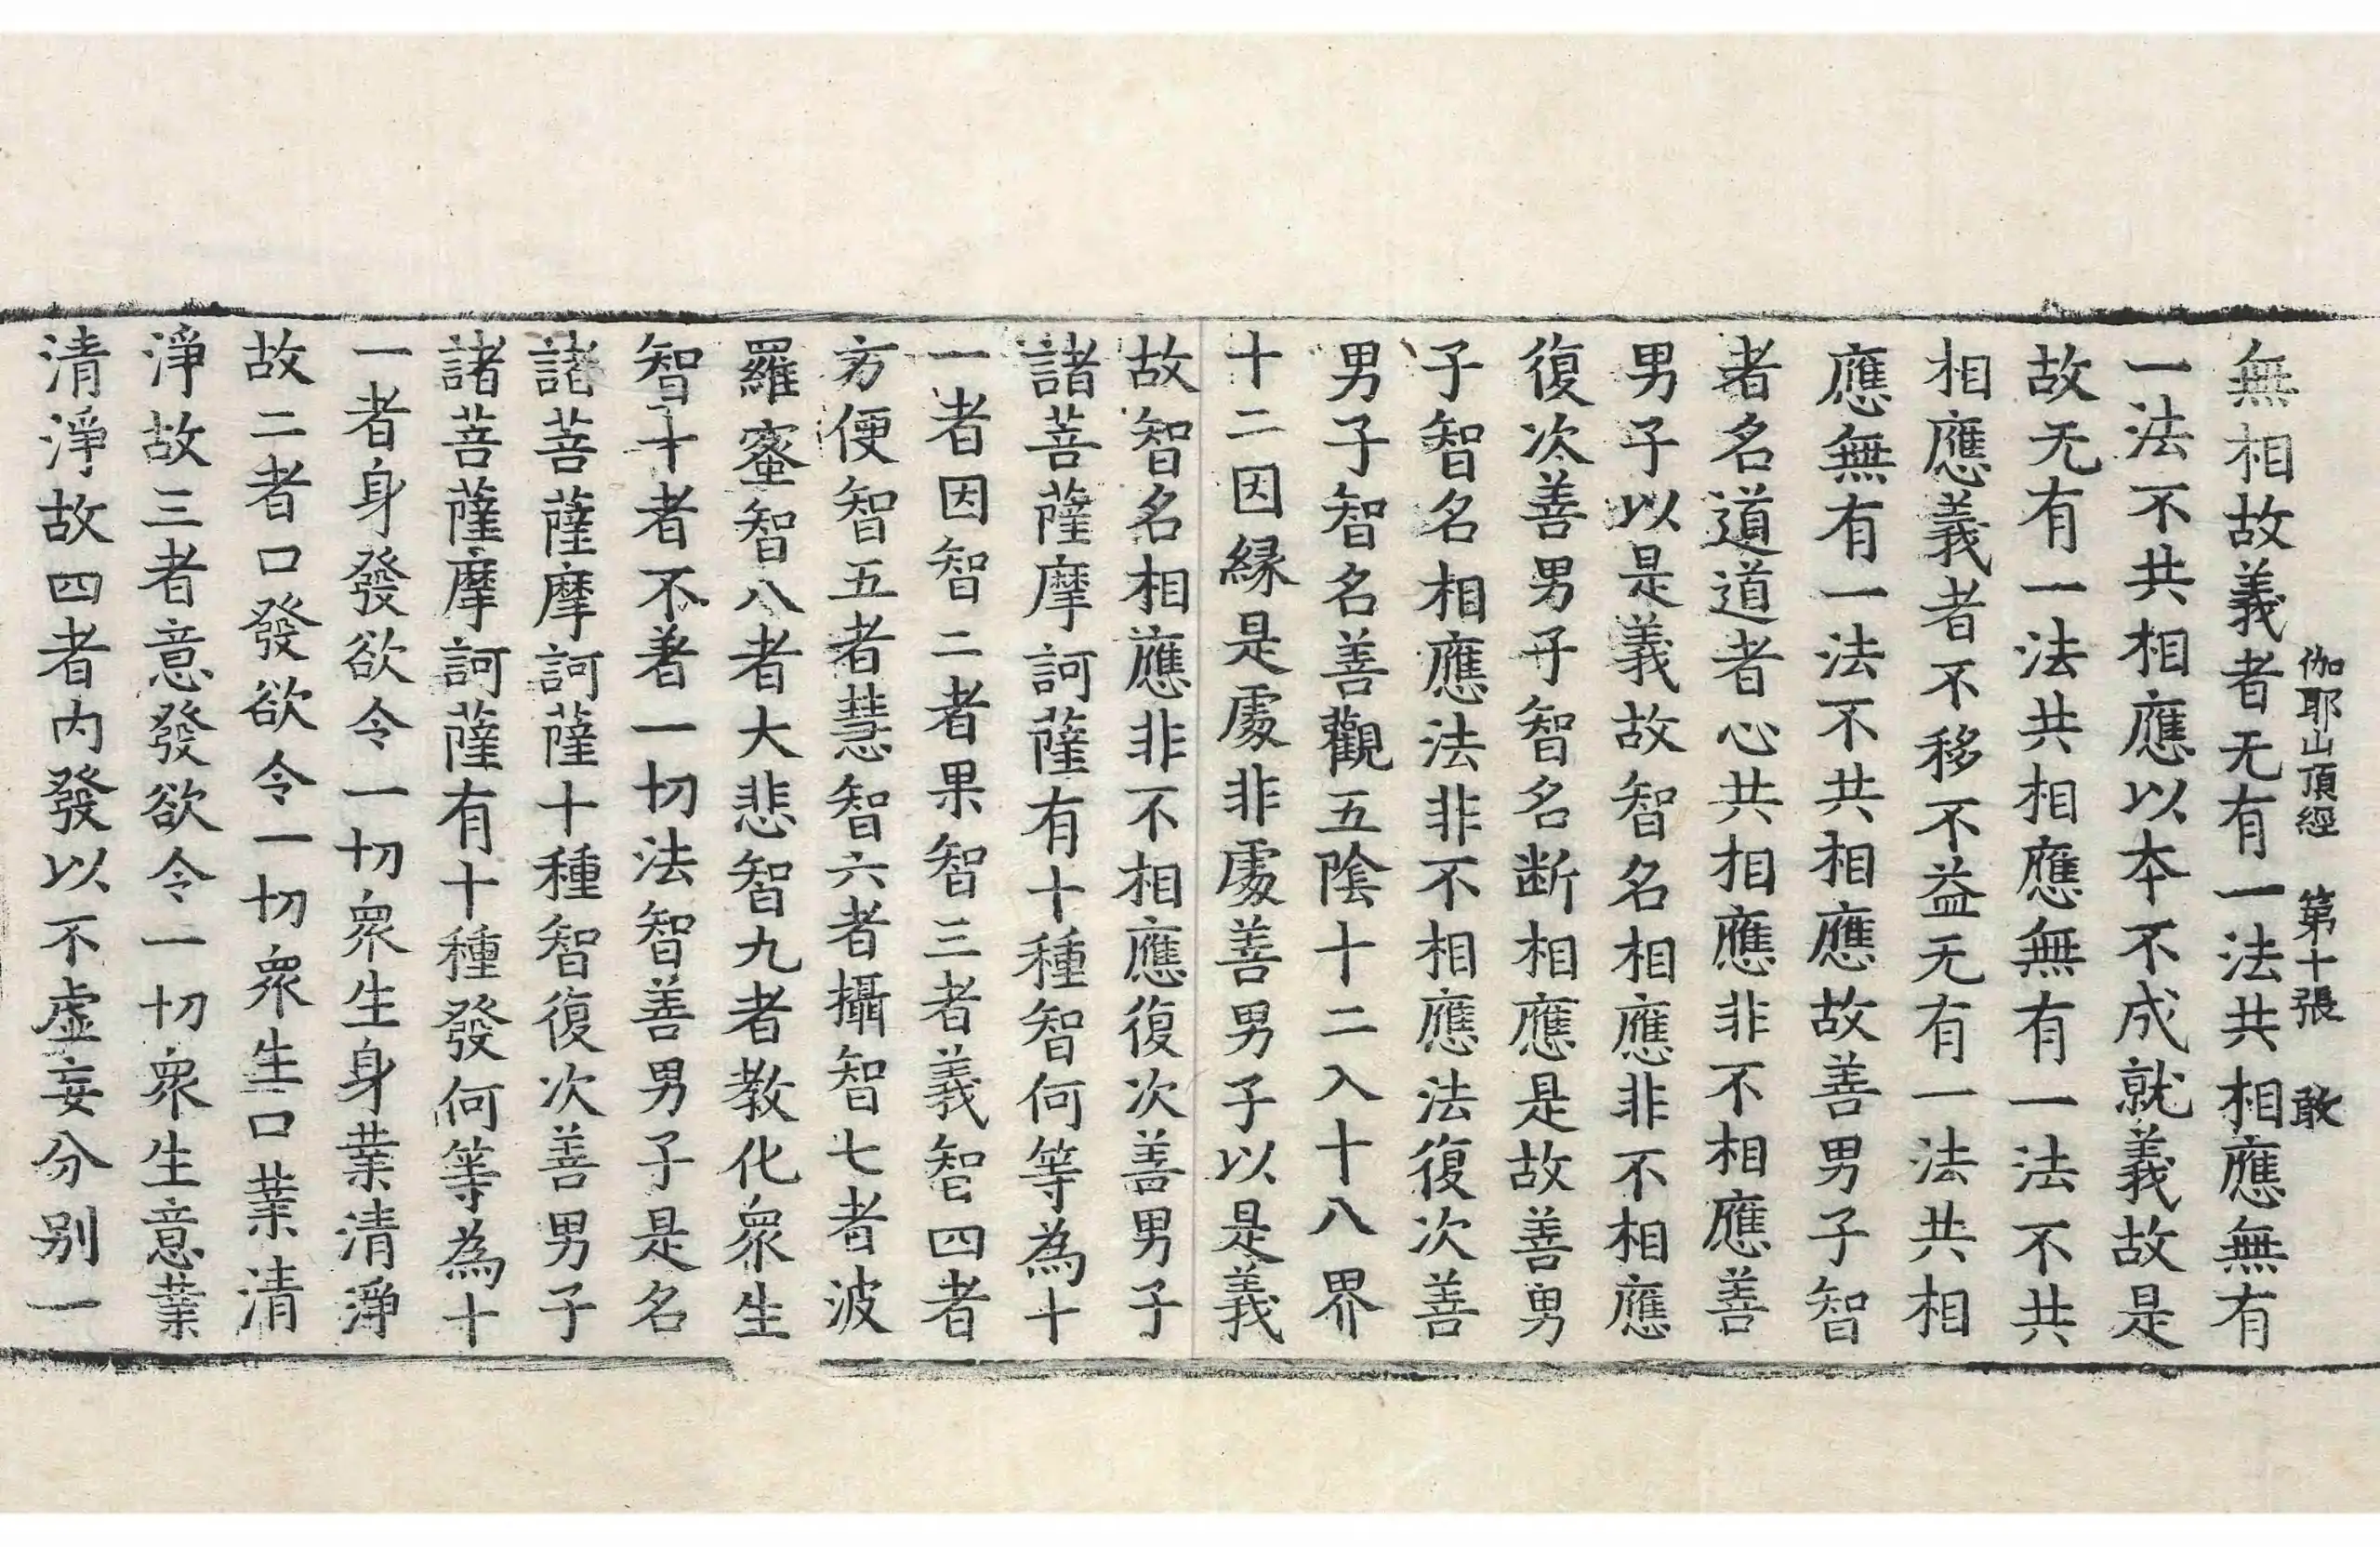 伽耶山頂經 第十張 敢
無相故義者无有一法共相應無有
一法不共相應以本不成就義故是
故无有一法共相應無有一法不共
相應義者不移不益无有一法共相
應無有一法不共相應故善男子智
者名道道者心共相應非不相應善
男子以是義故智名相應非不相應
復次善男子智名断相應是故善男
子智名相應法非不相應法復次善
男子智名善觀五陰十二入十八界
十二因縁是處非處善男子以是義
故智名相應非不相應復次善男子
諸菩薩摩訶薩有十種智何等為十
一者因智二者果智三者義智四者
方便智五者慧智六者攝智七者波
羅蜜智八者大悲智九者教化衆生
智十者不著一切法智善男子是名
諸菩薩摩訶薩十種智復次善男子
諸菩薩摩訶薩有十種發何等為十
一者身發欲令一切衆生身業清淨
故二者口發欲令一切衆生口業清
淨故三者意發欲令一切衆生意業
清淨故四者内發以不虛妄分別一